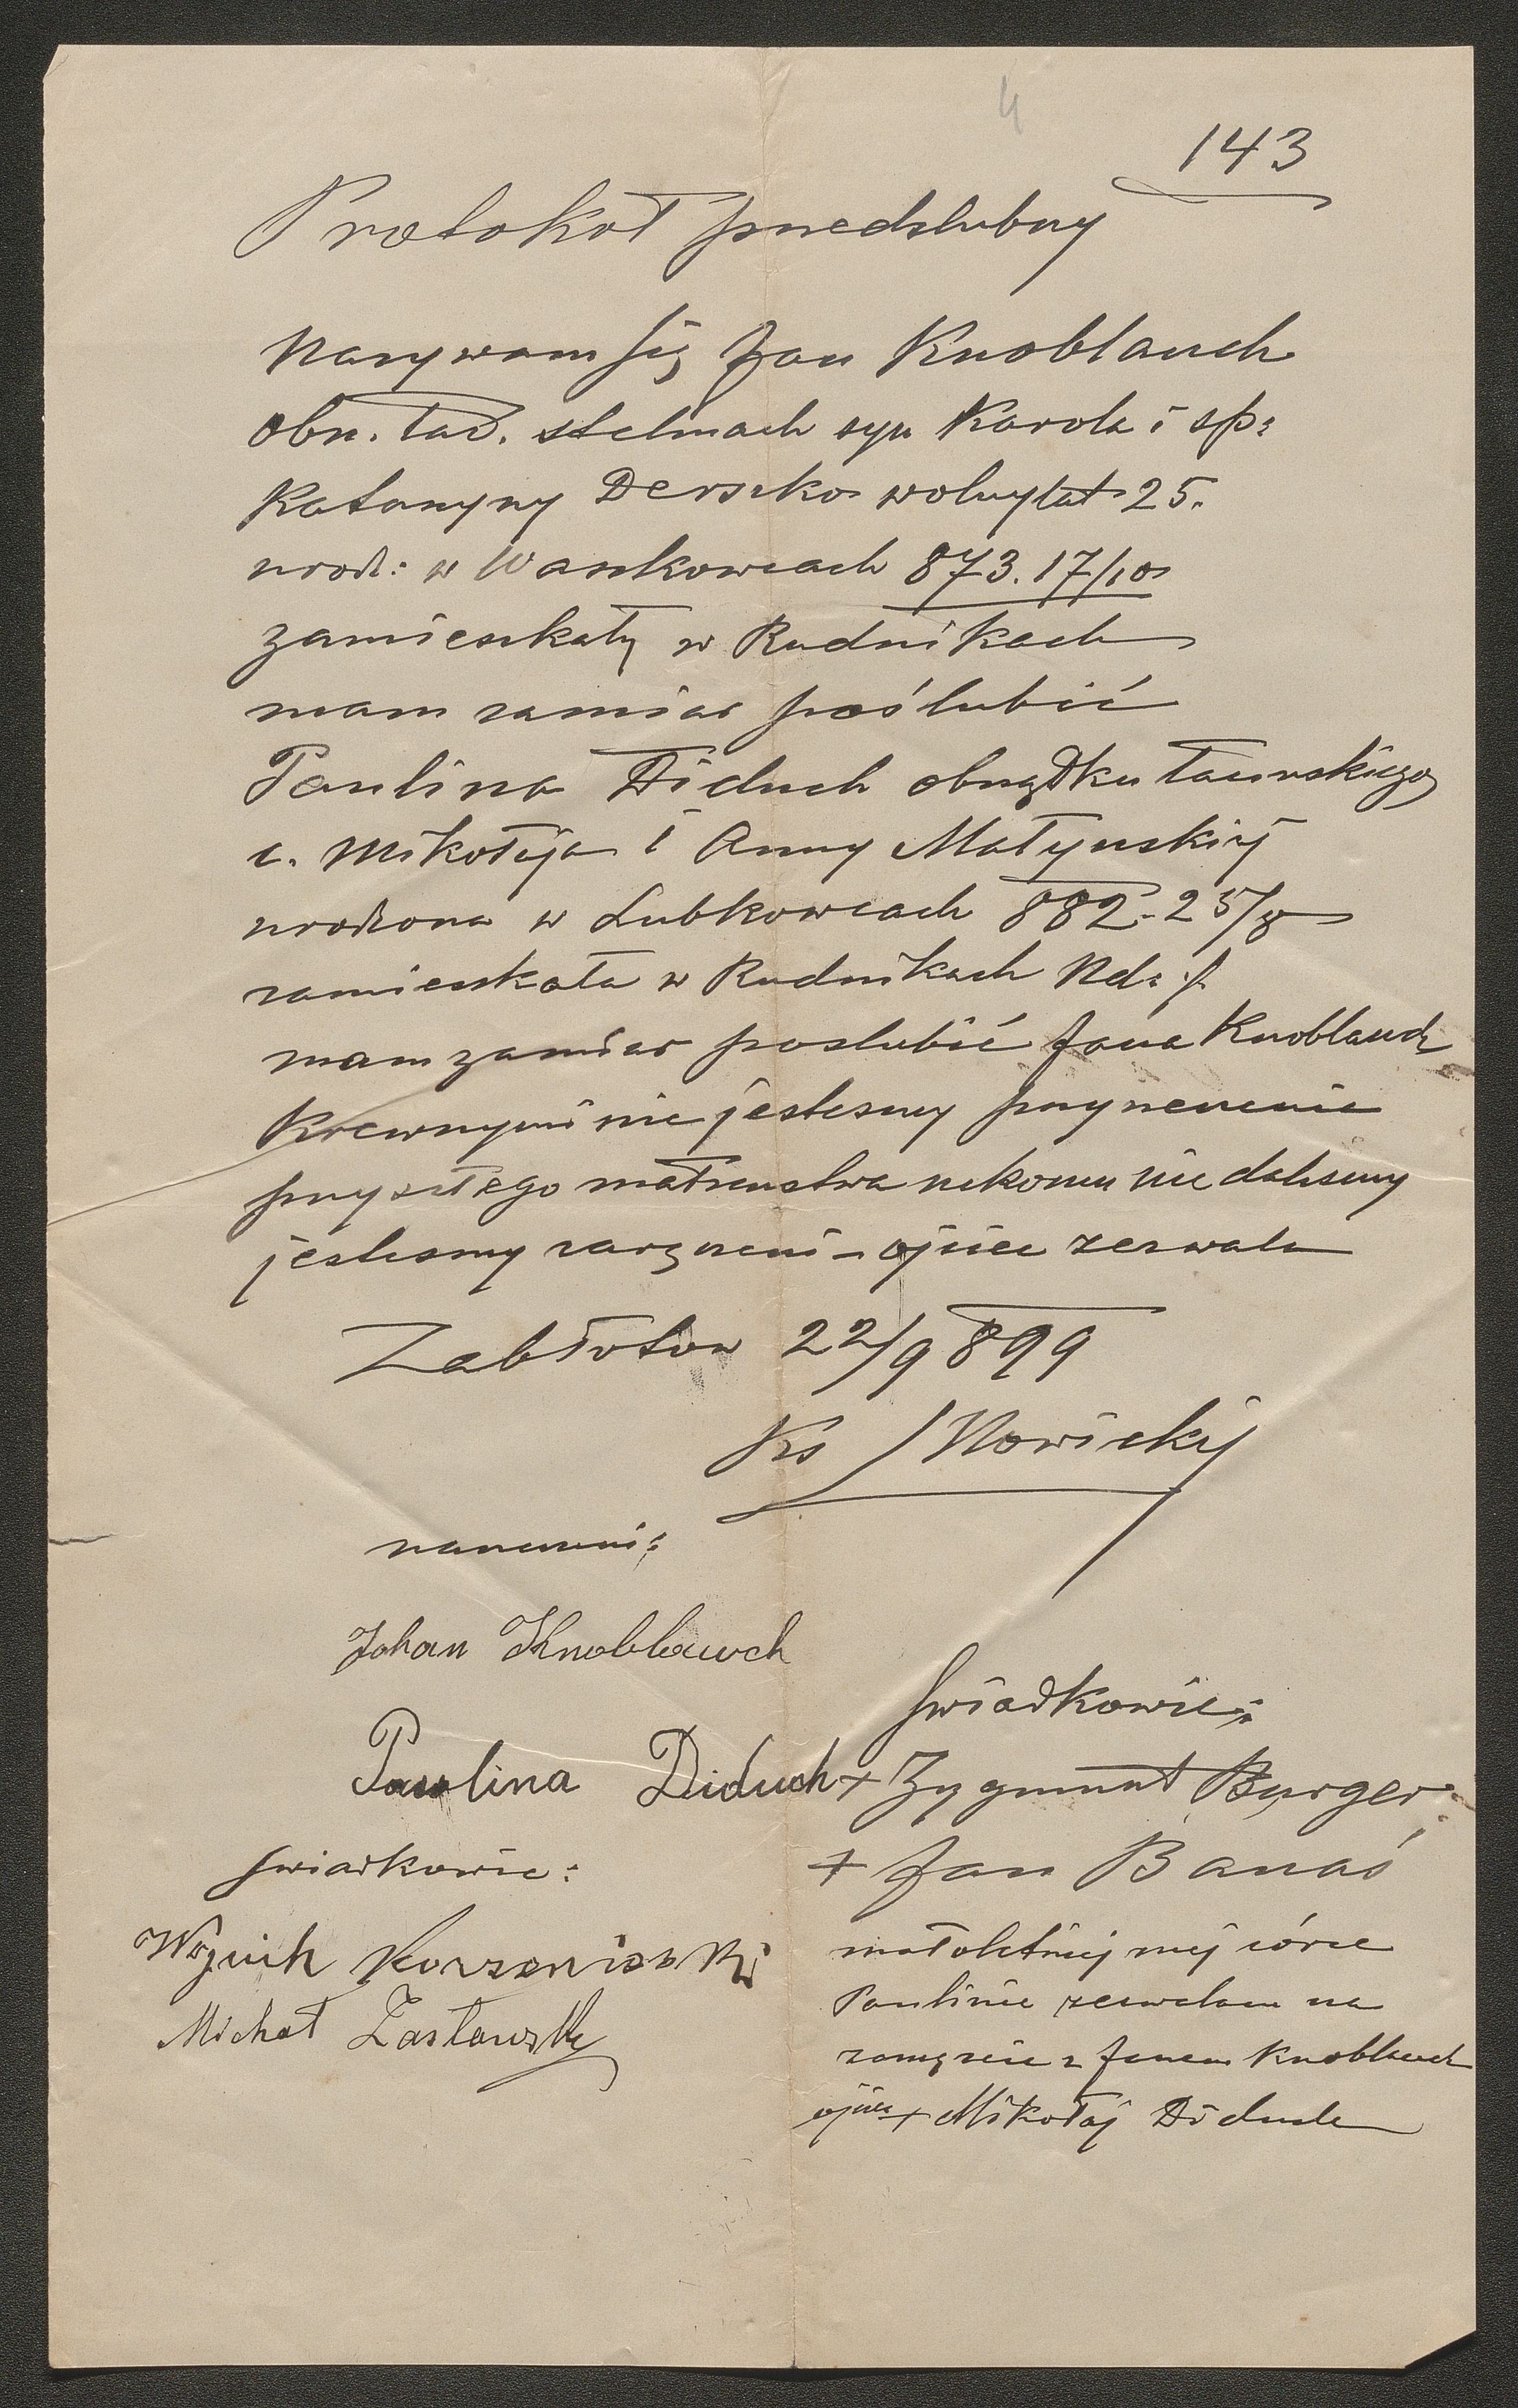 4
143
Protokoł przedslubny
Nazywam się Jan Knoblauch
obrz. łać. stelmach syn Karola i śp:
Katarzyny Derszko wolny lat 25.
urodz: w Waszkowcach 873. 17/10
zamieszkały w Rudnikach
mam zamiar poślubić
Paulina Diduch obrządku łacinskiego
c. Mikołaja i Anny Małynskiej
urodzona w Lubkowcach 882. 25/8
zamieszkała w Rudnikach
mam zamiar poslubić Jana Knoblauch
Krewnymi nie jestesmy przyrzeczenia
przyszłego małżenstwa nikomu nie dalismy
jestesmy zaręczeni – ojciec zezwala
Zabłotow 22/9 899
Ks J Nowicki
narzeczeni:
Johan Knoblauch
Paulina Diduch
swiadkowie:
+ Zygmunt Burger
+ Jan Banaś
swiadkowie:
Wojcich Korzeniowski
Michał Zasławski
małoletniej mej córce
Paulinie zezwalam na
zamęzcie z Janem Knoblauch
ojciec + Mikołaj Diduch